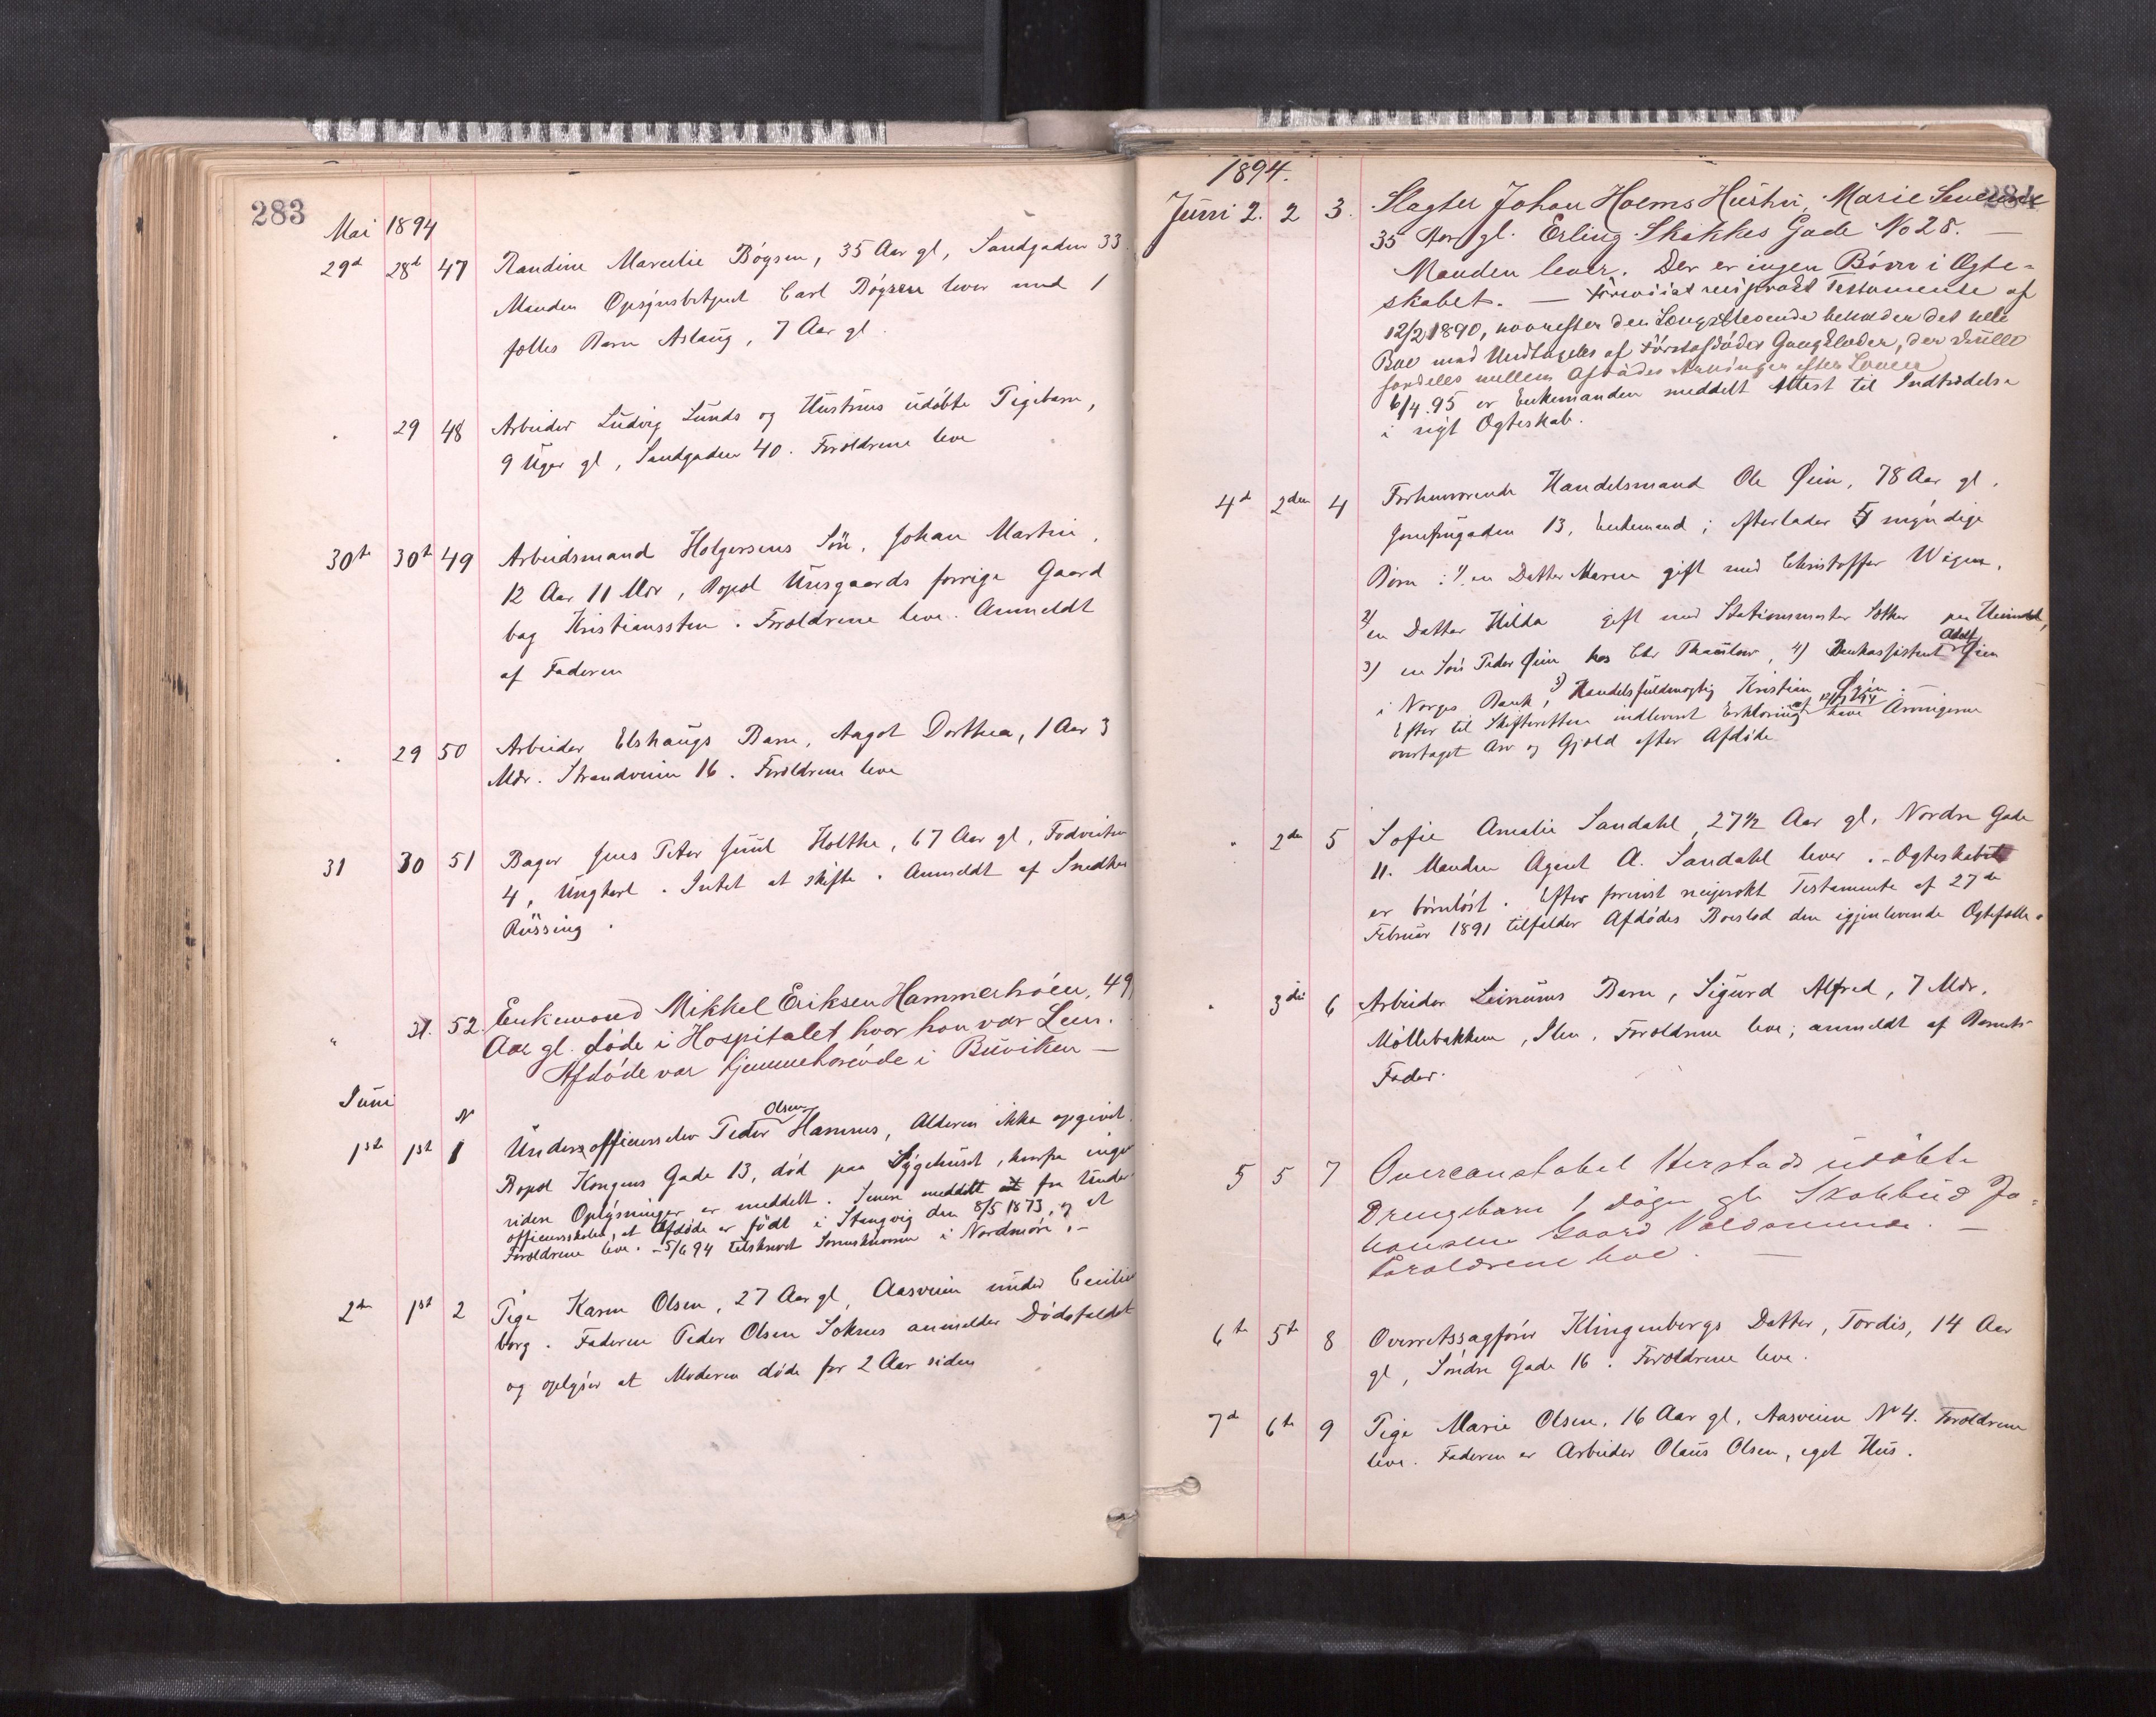 283
Mai 1894
29d 28d 47 Randine Marcelie Bøysen, 35 Aar gl, Sandgaden 33.
Manden Opsynsbetjent Carl Bøysen lever med 1
fælles Barn Aslaug, 7 Aar gl.
. 29 48 Arbeider Ludvig Lunds og Hustrus udøbte Pigebarn,
9 Uger gl, Sandgaden 40. Forældrene leve
30te 30te 49 Arbeidsmand Holgersens Søn, Johan Martin,
12 Aar 11 Mdr, Bopæl Unsgaards forrige Gaard
bag Kristianssten. Forældrene leve. Anmeldt
af Faderen
. 29 50 Arbeider Elshaugs Barn, Aagot Dorthea, 1 Aar 3
Mdr. Strandveien 16. Forældrene leve
31 30 51 Bager Jens Peter Juul Holthe, 67 Aar gl,
4, Ungkarl. Intet at skifte. Anmeldt af Snedker
Rüssing.
" 31. 52. Enkemand Mikkel Eriksen Hammerhøien, 49
Aar gl. døde i Hospitalet, hvor han var Lem.
Afdøde var hjemmehørende i Buviken —
Juni
N
1ste 1ste 1 Underofficerselev Peder Olsen Hamnes, Alderen ikke opgivet.
Bopæl Kongens Gade 13, død paa Sygehuset, hvorfra ingen
videre Oplysninger er meddelt. Senere meddelt fra Under-
officersskolen, at Afdøde er født i Stangvig den 8/5 1873, og at
Forældrene leve. - 5/6 94 tilskrevet Sorenskriveren i Nordmøre. -
2den 1ste 2 Pige Karen Olsen, 27 Aar gl, Aasveien under Cecilien
borg. Faderen Peder Olsen Soknes anmelder Dødsfaldet
og oplyser at Moderen døde for 2 Aar siden
284
1894.
Juni 2. 2 3. Slagter Johan Holms Hustru, Marie
35 Aar gl. Erling Skakkes Gade No 28. —
Manden lever. Der er ingen Børn i Ægte-
skabet. — Foreviist reciprokt Testamente af
12/2 1890, hvorefter den Længstlevende beholder det hele
Boe med Undtagelse af Førstafdødes Gangklæder, der skulle
fordeles mellem Afdødes Arvinger efter Loven
6/4.95 er Enkemanden meddelt Attest til Indtrædelse
i nyt Ægteskab.
4de 2den 4 Forhenværende Handelsmand Ole Øien, 78 Aar gl.
Jomfrugaden 13, Enkemand; efterlader 5 myndige
Børn: 1/ en Datter Maren gift med Christoffer Wigen,
2/ en Datter Hilda gift med Stationsmester Sæther paa Heimdal,
3) en Søn Peder Øien hos Chr Thaulow, 4) Bankassistent Adolf Øien
i Norges Bank, 5) Handelsfuldmægtig Kristian Øien. —
Efter til Skifteretten indleveret Erklæring af 12/7 94 have Arvingerne
overtaget Arv og Gjæld efter Afdøde
. 2den 5 Sofie Amalie Sandahl, 27½ Aar gl. Nordre Gade
11. Manden Agent A. Sandahl lever. - Ægteskabet
er barnløst. Efter forevist reciprokt Testamente af 27de
Februar 1891 tilfalder Afdødes Boeslod den igjenlevende Ægtefælle.
. 3die 6 Arbeider Leinums Barn, Sigurd Alfred, 7 Mdr,
Møllebakken, Ilen. Forældrene leve; anmeldt af Barnets
Fader.
5 5 7 Overconstabel Herstads udøbte
Drengebarn 1 Døgn gl. Jo-
hansens Gaard Voldsminde. —
Forældrene leve. —
6te 5te 8 Overretssagfører Klingenbergs Datter, Tordis, 14 Aar
gl, Søndre Gade 16. Forældrene leve.
7de 6te 9 Pige Marie Olsen, 16 Aar gl, Aasveien No 4. Forældrene
leve. Faderen er Arbeider Olaus Olsen, eget Hus.